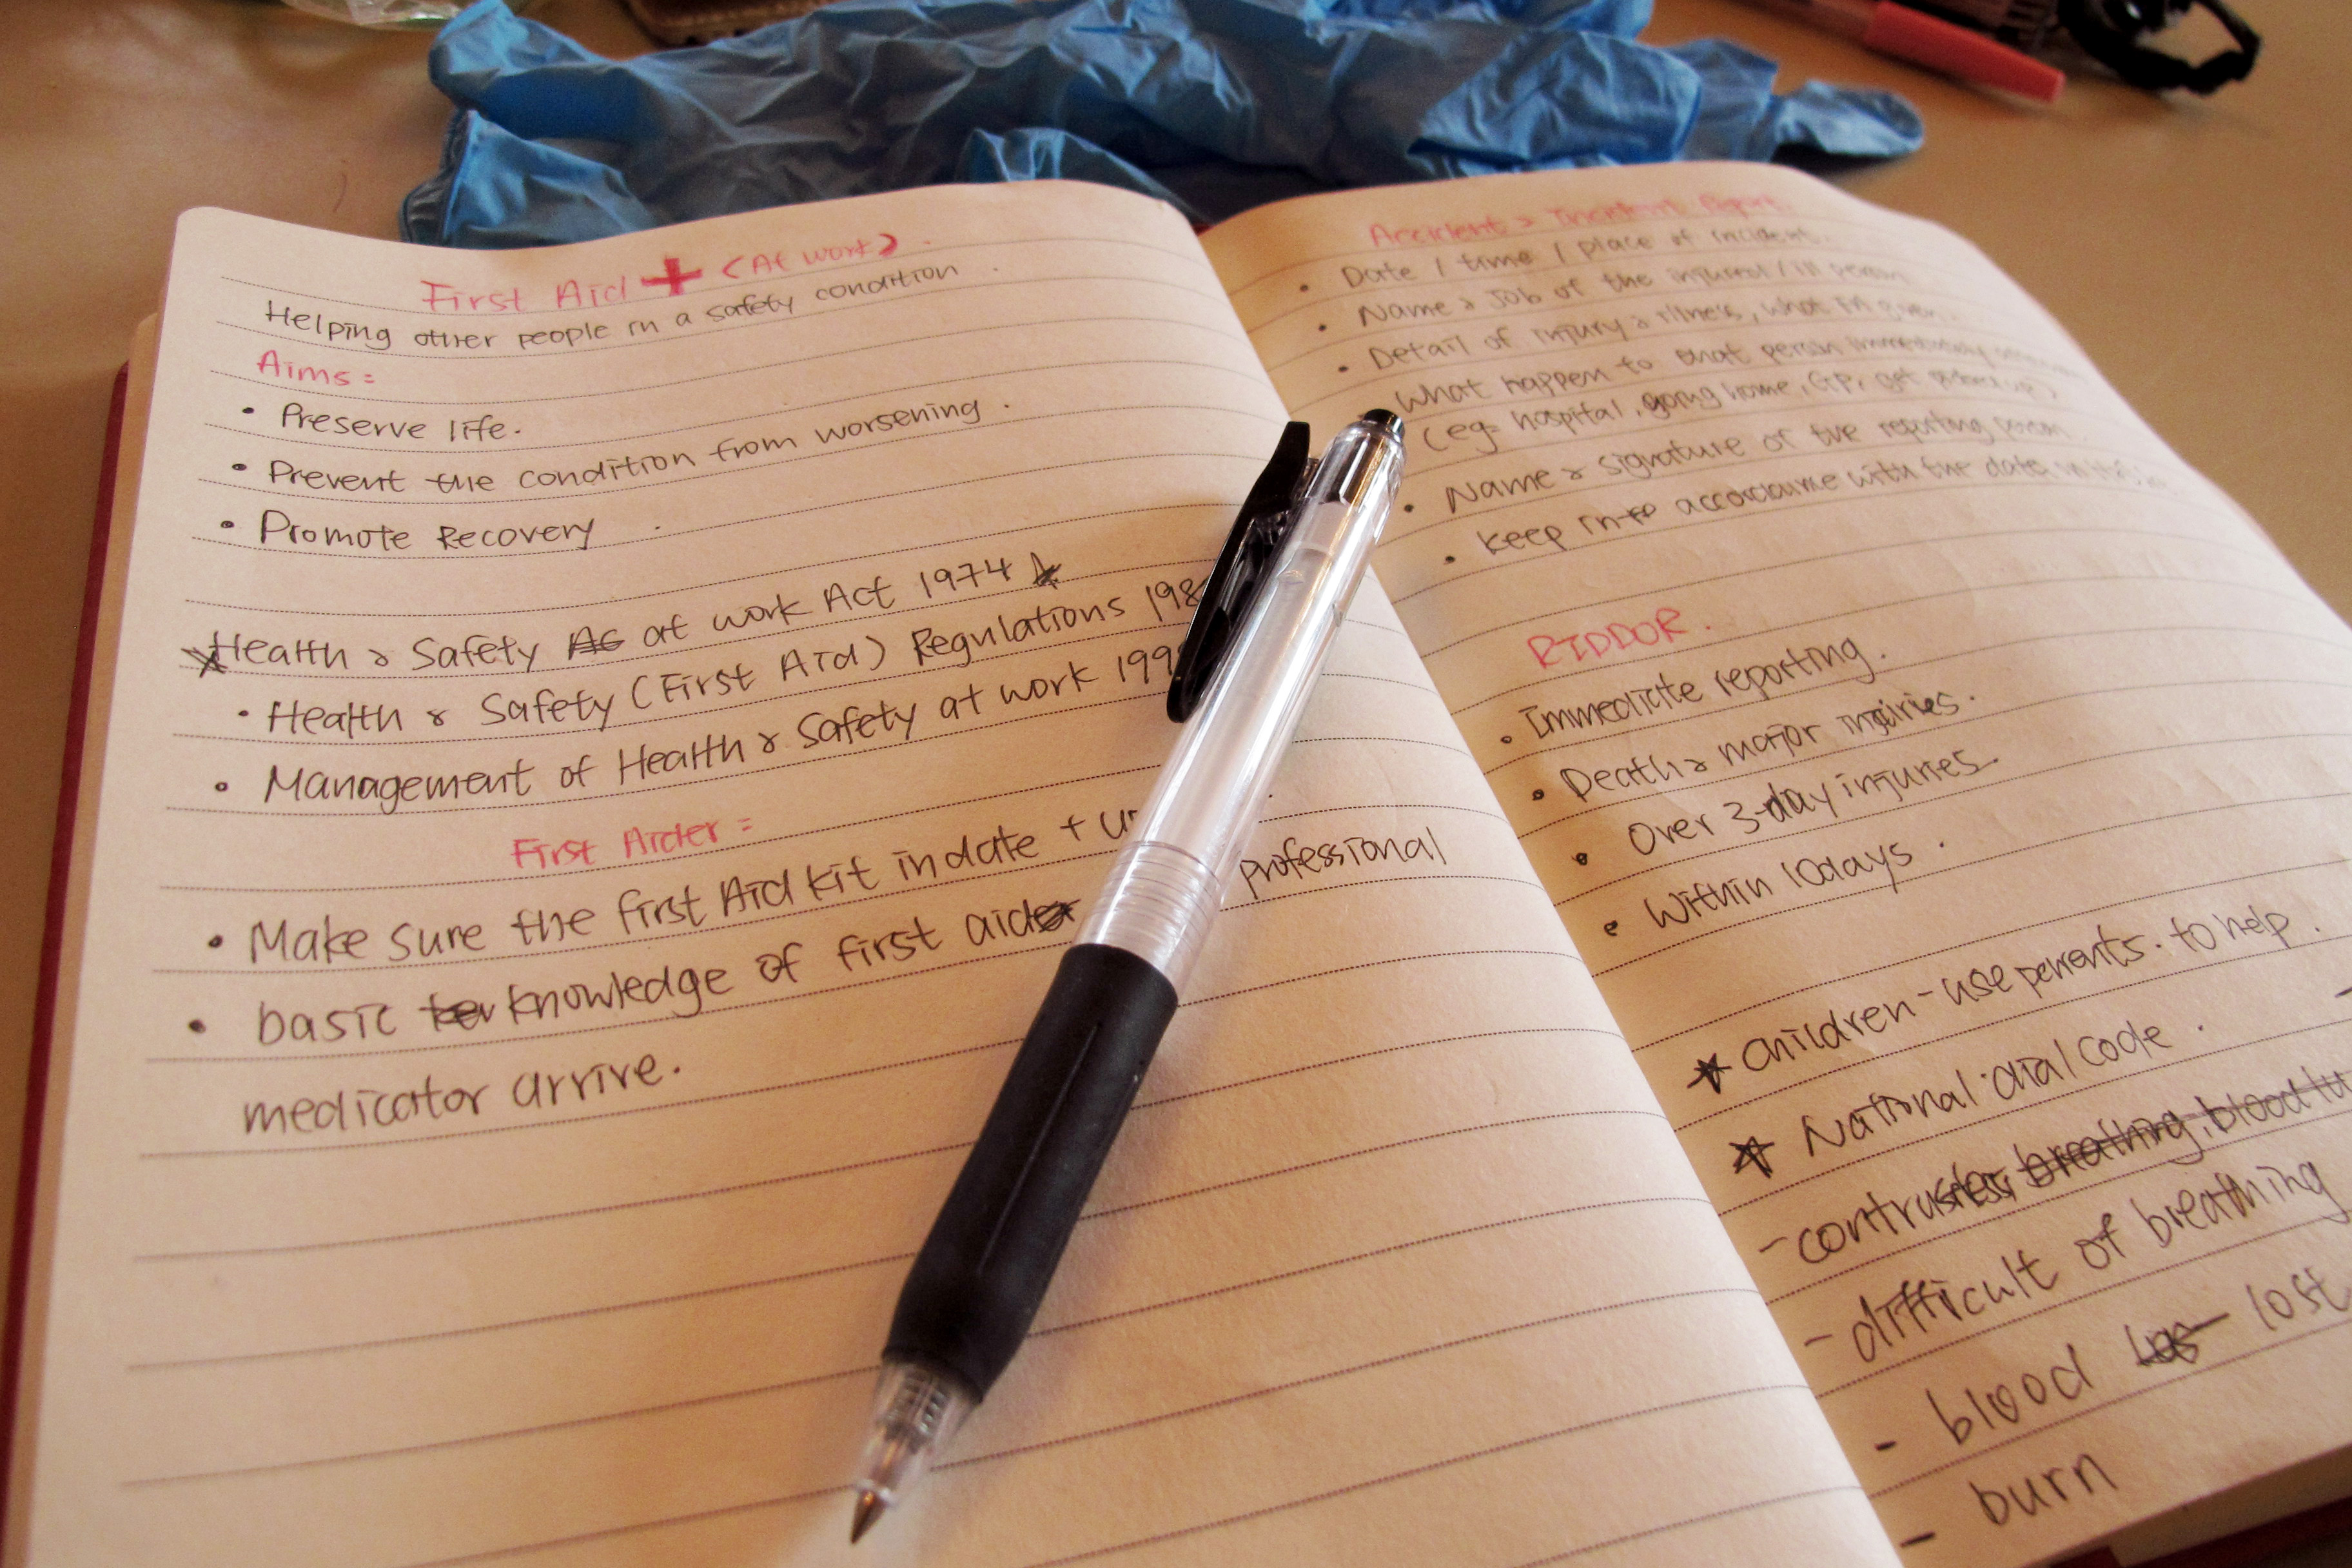 First Aid + (At work)
Helping other people in a safety condition
Aims =
• Preserve life.
• Prevent the condition from worsening.
• Promote Recovery
Health & Safety at work Act 1974
• Health & Safety (First Aid) Regulations 198
• Management of Health & Safety at work 199
First Aider =
• Make sure the first Aid kit in date + up
• basic knowledge of first aid professional
medicator arrive.
Accident & Incident Report
• Date / time / place of incident.
• Name & Job of the injured / ill person
• Detail of injury & illness, what
What happen to that person immediately
(eg= hospital, going home, GP, get
• Name & signature of the reporting person
• Keep in accordance with the date
RIDDOR.
• Immediate reporting.
• Death & major injuries.
• Over 3-day injuries.
• Within 10days.
★ Children - use parents. to help.
★ National dial code.
- breathing, blood
- difficult of breathing
- blood lost
- burn